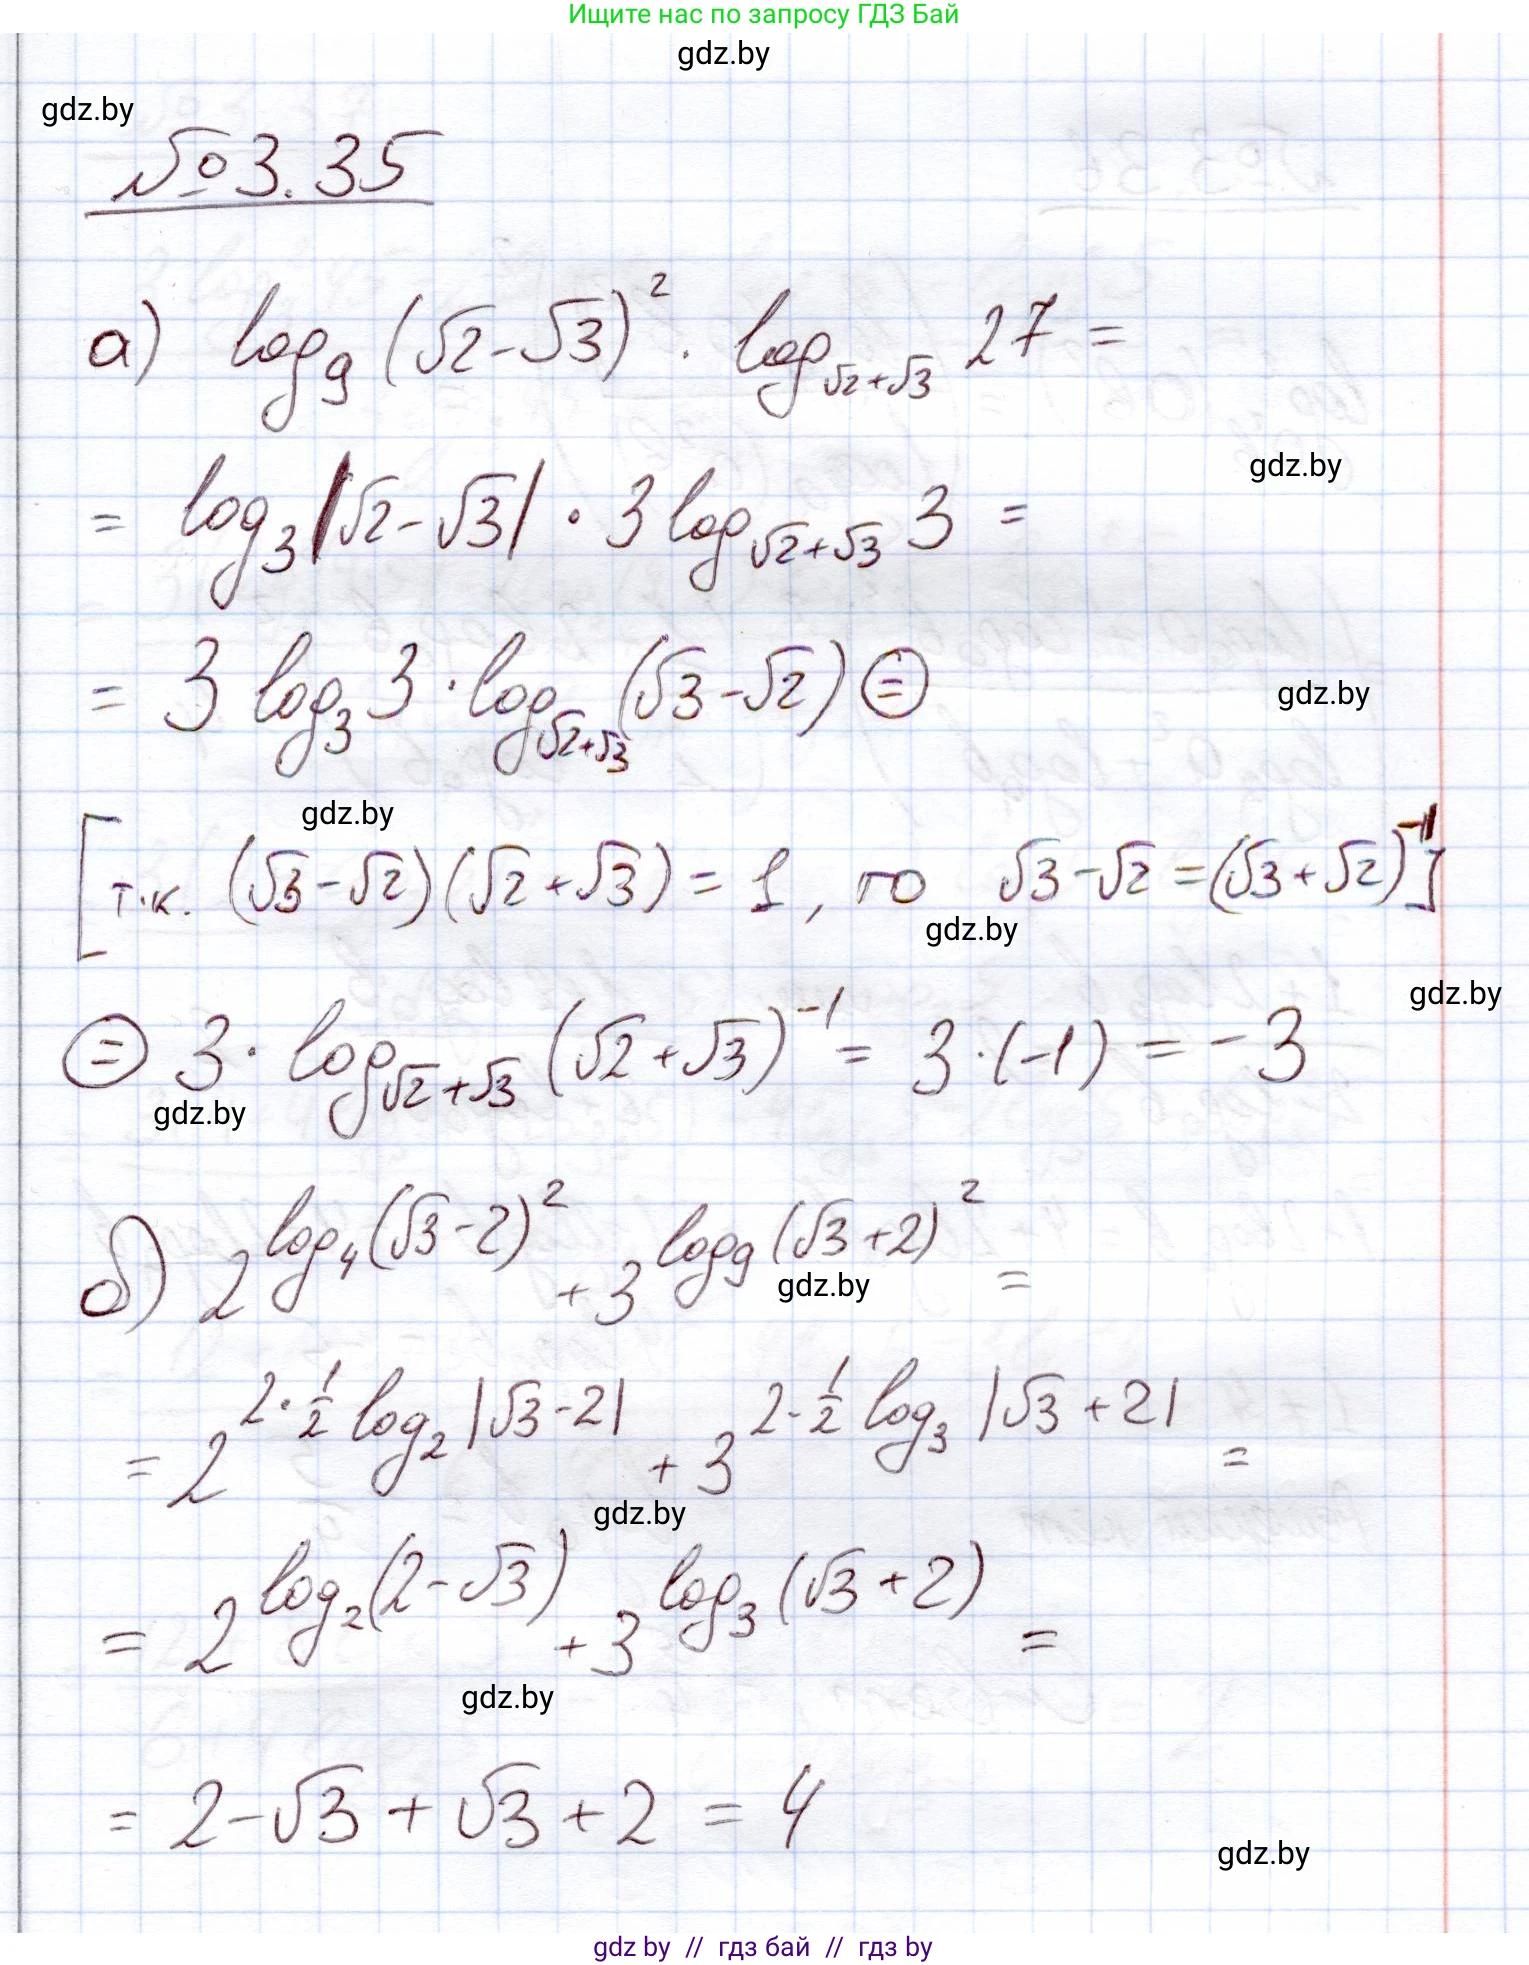 Ищите нас по запросу ГДЗ Бай
gdz.by
gdz.by
№3.35
а) log₉(√2-√3)² · log_{√2+√3} 27 =
= log₃|√2-√3| · 3 log_{√2+√3} 3 =
gdz.by
= 3 log₃3 · log_{√2+√3}(√3-√2) ⊜
gdz.by
gdz.by
[т.к. (√3-√2)(√2+√3) = 1, то √3-√2=(√3+√2)⁻¹]
gdz.by
gdz.by
⊜ 3· log_{√2+√3}(√2+√3)⁻¹ = 3·(-1) = -3
gdz.by
б) 2^{log₄(√3-2)²} + 3^{log₉(√3+2)²} =
gdz.by
= 2^{2·½ log₂|√3-2|} + 3^{2·½ log₃|√3+2|} =
gdz.by
= 2^{log₂(2-√3)} + 3^{log₃(√3+2)} =
gdz.by
= 2-√3+√3+2 = 4
gdz.by
gdz by // гдз бай // гдз by